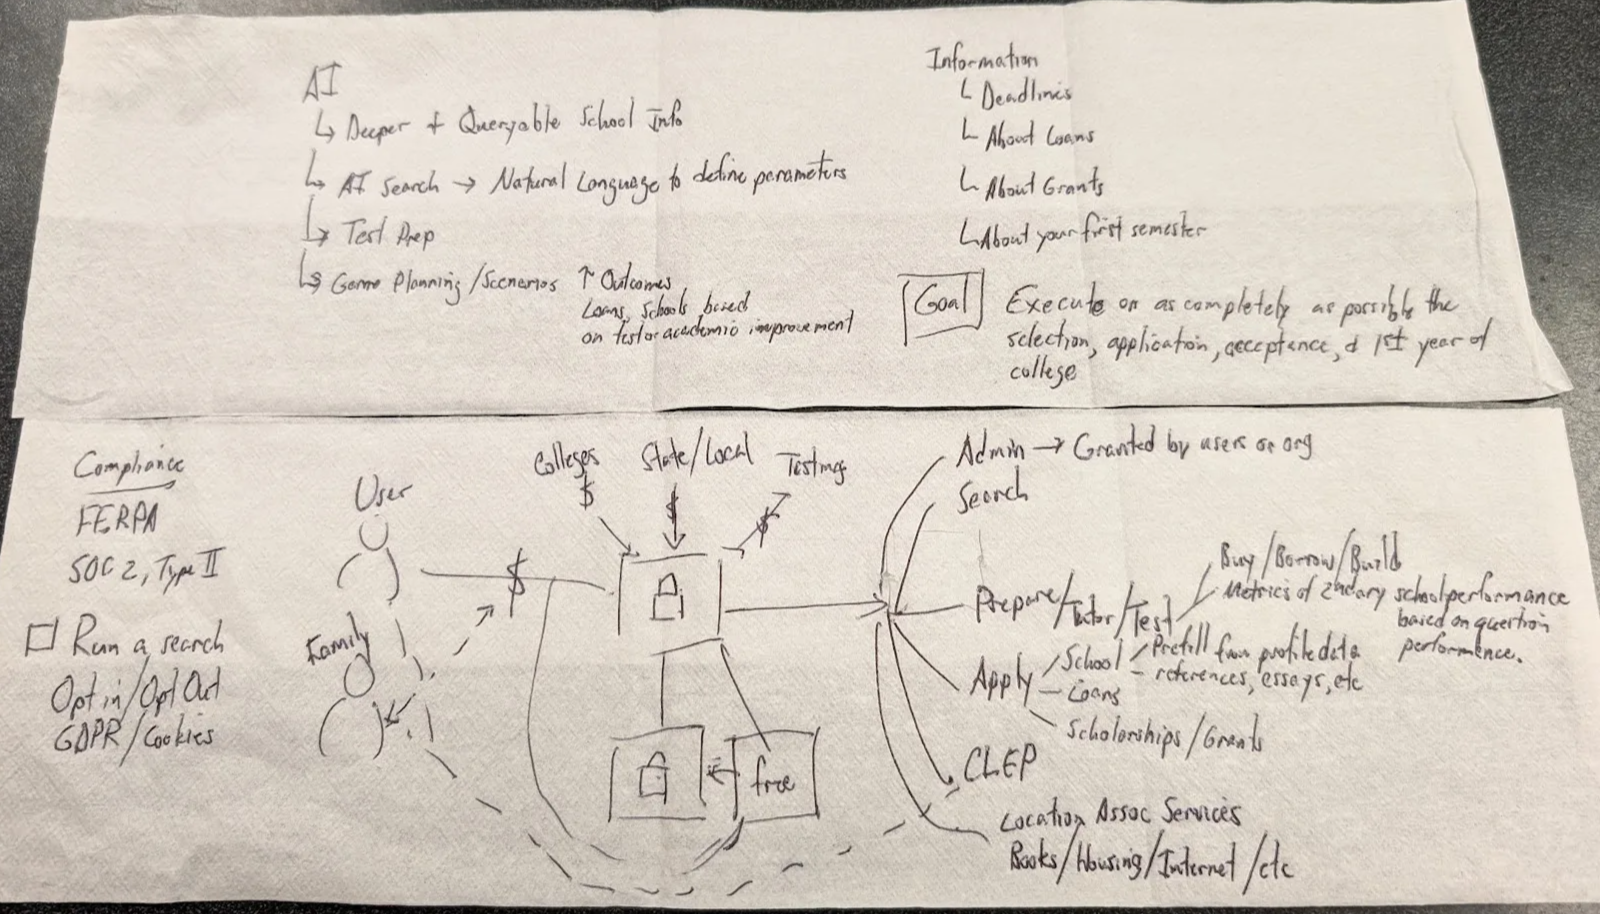 AI
↳ Deeper + Queryable School Info
↳ AI Search → Natural Language to define parameters
↳ Test Prep
↳ Game Planning/Scenarios ↑ Outcomes
Loans, Schools based
on test or academic improvement
Information
Deadlines
About Loans
About Grants
About your first semester
Goal
Execute on as completely as possible the
selection, application, acceptance, & 1st year of
college
Compliance
FERPA
SOC 2, Type II
Run a search
Opt in/Opt Out
GDPR/Cookies
User
Family
$
Colleges
$
State/Local
$
Testing
$
free
Admin → Granted by users or org
Search
Prepare/Tutor/Test
Buy/Borrow/Build
Metrics of 2ndary school performance
based on question
performance.
Apply
School
Prefill from profile data
- references, essays, etc
Loans
Scholarships/Grants
CLEP
Location Assoc Services
Books/Housing/Internet/etc